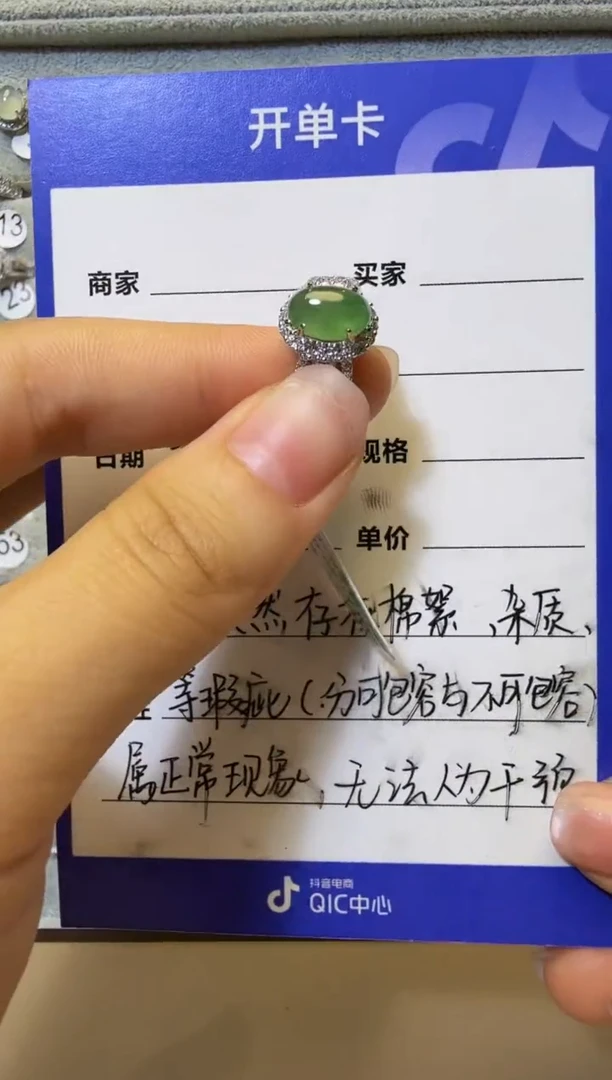 开单卡
商家
买家
日期
规格
单价
然存有棉絮、杂质、
等瑕疵(分可包容与不可包容)
属正常现象,无法人为干预
抖音电商
QIC中心
13
23
63